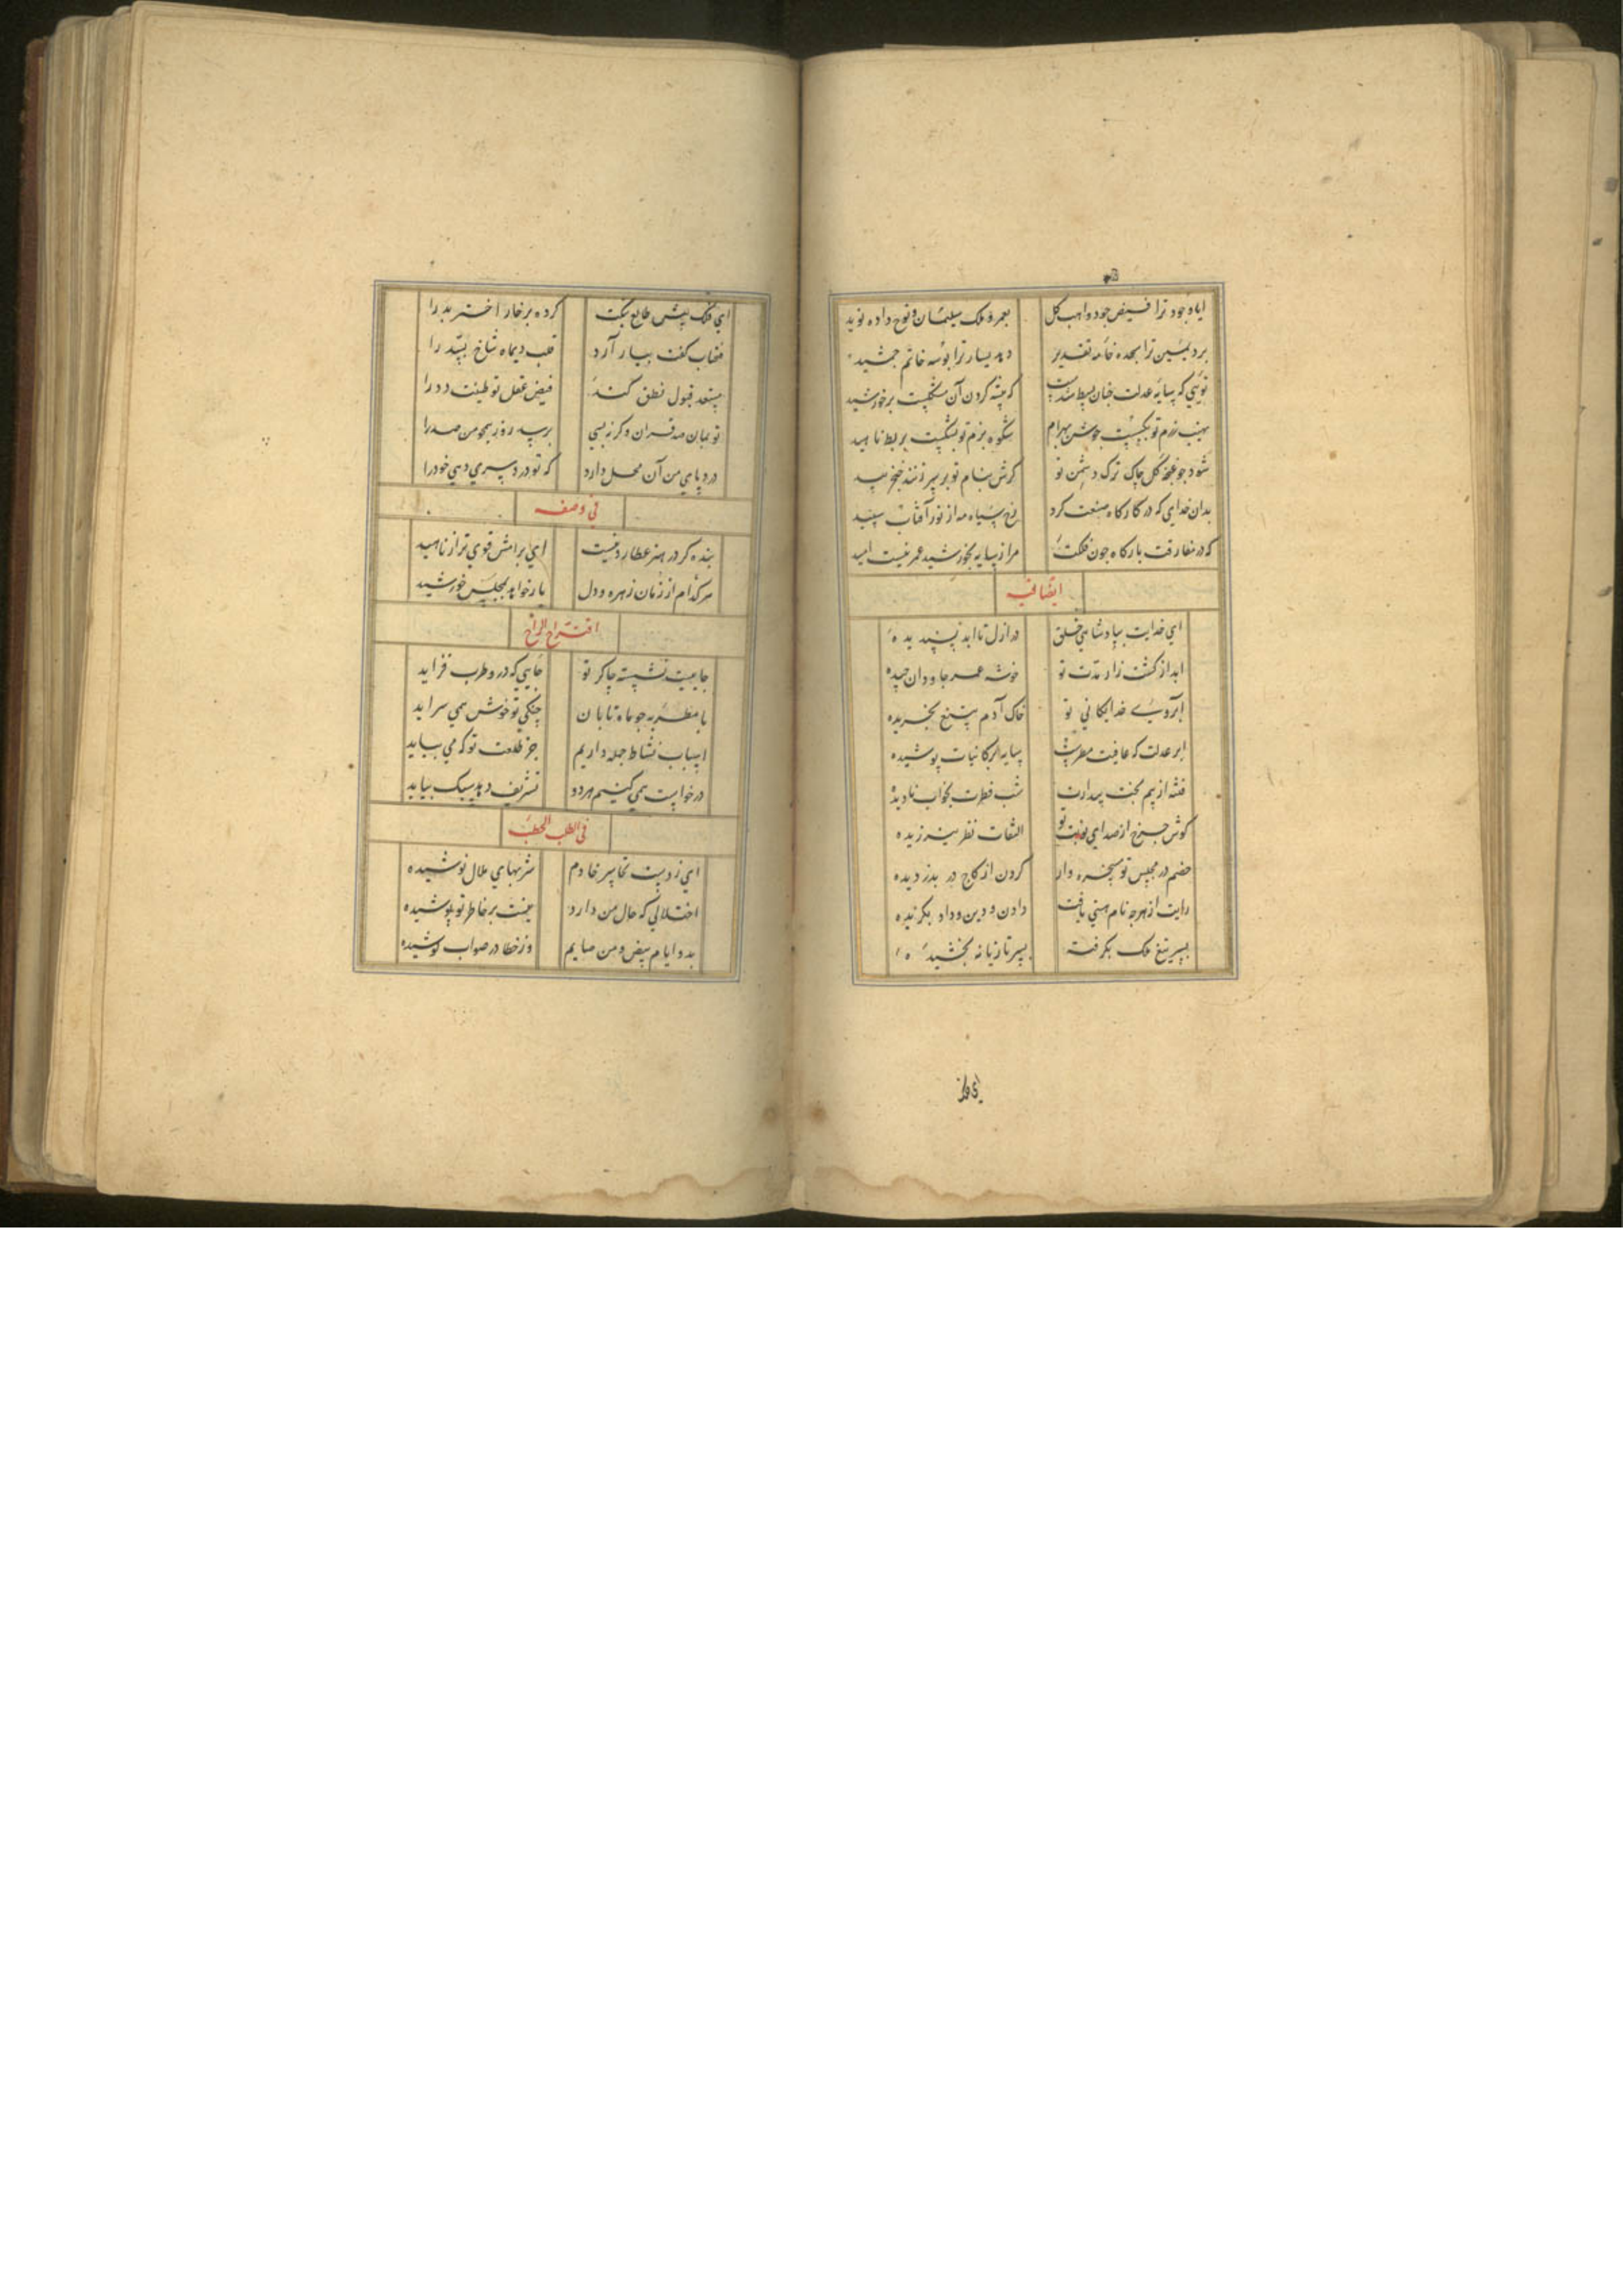 ایا وجود ترا فیض جود واهب کل بعمر و ملک سلیمان و نوح داده نوید
برد یمین ترا سجده خامه تقدیر دهد یسار ترا بوسه خاتم جمشید
تویی که سایه عدلت چنان بسیط شدست که چیره کردن آن شکست بر خورشید
نهیب رزم تو بکسست جوشن بهرام شکوه بزم تو بشکست بربط ناهید
شود چو غنچه کل چاک ترک دشمن تو کرش بنام تو بر سر زنند خنجر بید
بدان خدای که در کارکاه صنعت کرد رخ سیاه مه از نور آفتاب سپید
که در مفارقت بارکاه چون فلکت مرا ز سایه بخورشید عمر نیست امید
ایضا فیه
ای خدایت بپادشاهی خلق در ازل تا ابد پسندیده
ابد از کشت زار مدت تو خوشه عمر جاودان چیده
آبروی خدایکانی تو خاک آدم بتیغ بخریده
ابر عدلت که عافیت مطرست سایه بر کاینات پوشیده
فتنه از بیم بخت بیدارت شب فطرت بخواب نادیده
کوش چرخ از صدای نوبت تو التفات نظر
خصم در مجلس تو سخره وار کردن از کاج در بدزدیده
رایت از هرچه نام هستی یافت دادن و دین و داد بکزیده
بسر تیغ ملک بکرفته بسر تازیانه بخشیده
ای فلک
ای فلک پیش طالع نیکت کرده بر خار اختر بد را
فتحباب کفت ببار آرد قلب دیماه شاخ بسد را
مستعد قبول نطق کند فیض عقل تو طینت دد را
تو بمان صد قران و کرنه بسی برسد روز همچو من صد را
درد پای من آن محل دارد که تو در دردسری دهی خود را
فی وصفه
بنده کر در هنر عطارد نیست ای برامش قوی تر از ناهید
هر کدام از زمان زهره و دل یا رخواند بمجلس خورشید
اقتراح الراح
جاییست نشسته چاکر تو جایی که درو طرب فزاید
با مطربه چو ماه تابان چنکی تو خوش همی سراید
اسباب نشاط جمله داریم جز طلعت تو که می بباید
درخواست همی کنیم هردو تشریف دهد سبک بیاید
فی الطلب الحطب
ای ز دست تحاسر خادم شربتهای ملال نوشیده
اختلالی که حال من دارد نیست بر خاطر تو پوشیده
بدو ایام بیض و من صایم وز خطا در صواب کوشیده